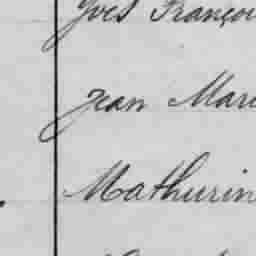 Yves Françoi
Jean Mari
Mathurin